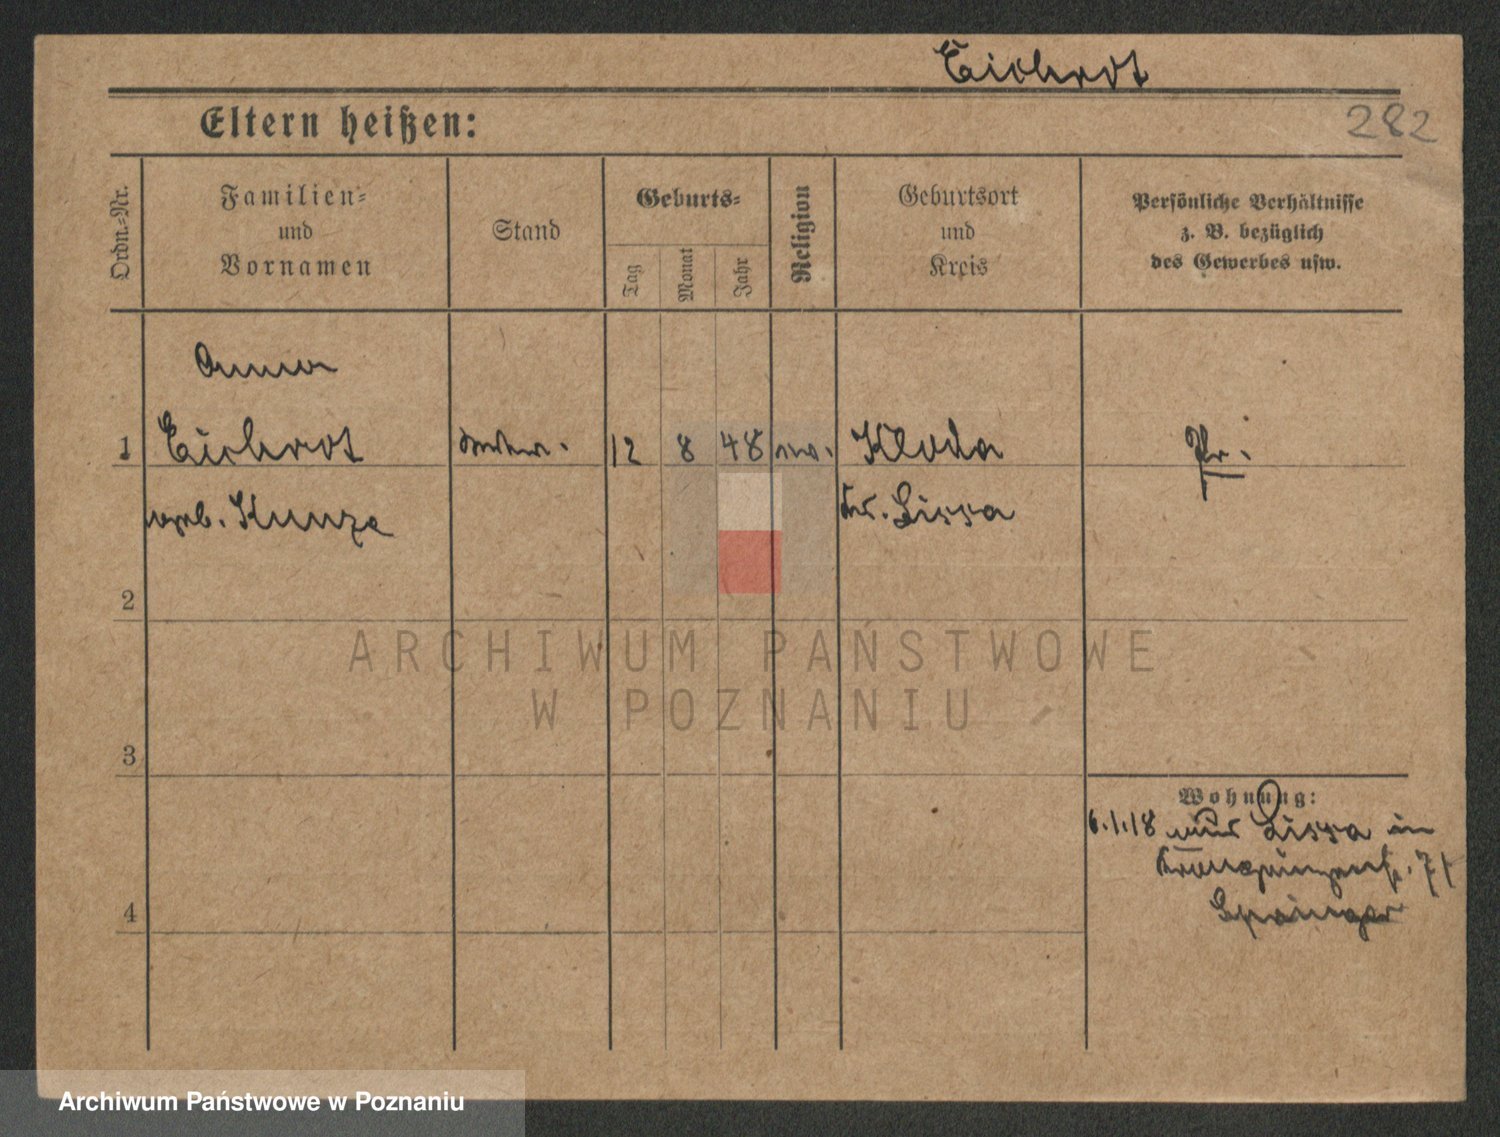 Eichrot
Eltern heißen:
282
Ordn.-Nr.
Familien-
und
Vornamen
Stand
Geburts-
Tag
Monat
Jahr
Religion
Geburtsort
und
Kreis
Persönliche Verhältnisse
z. B. bezüglich
des Gewerbes usw.
Anna
1 Eichrot 12 8 48 ev. Kloda Pr.
geb. Kunze Kr. Lissa
2
3
4
Wohnung:
6.1.18 Lissa in
Kronprinzenst. 71
Springer
ARCHIWUM PAŃSTWOWE
W POZNANIU
Archiwum Państwowe w Poznaniu